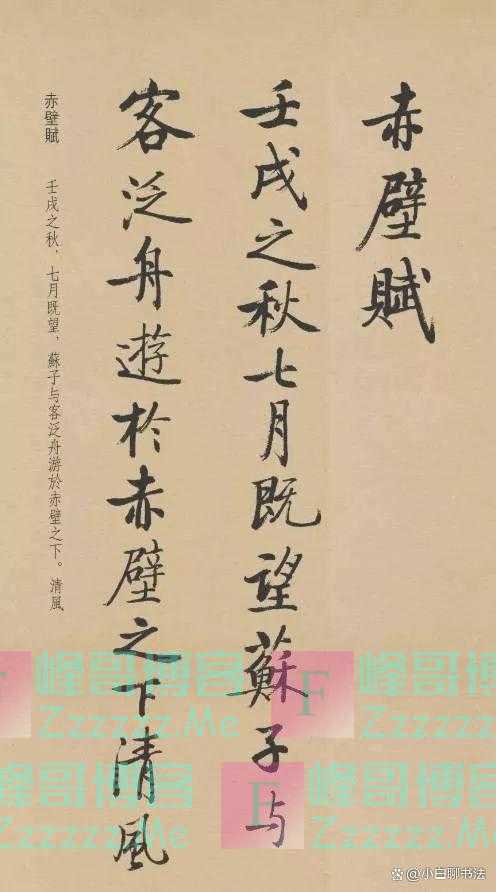 赤壁賦
壬戌之秋七月既望蘇子与
客泛舟遊於赤壁之下清風
赤壁賦 壬戌之秋，七月既望，蘇子与客泛舟游於赤壁之下。清風
峰哥博客
Zzzzzz.Me
F 峰哥博客
Zzzzzz.Me
峰哥博客
Zzzzzz.Me
F 峰哥博客
Zzzzzz.Me
@小白聊书法